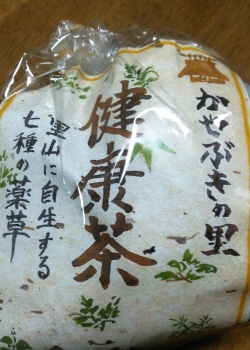 かやぶきの里
健康茶
里山に自生する
七種の薬草